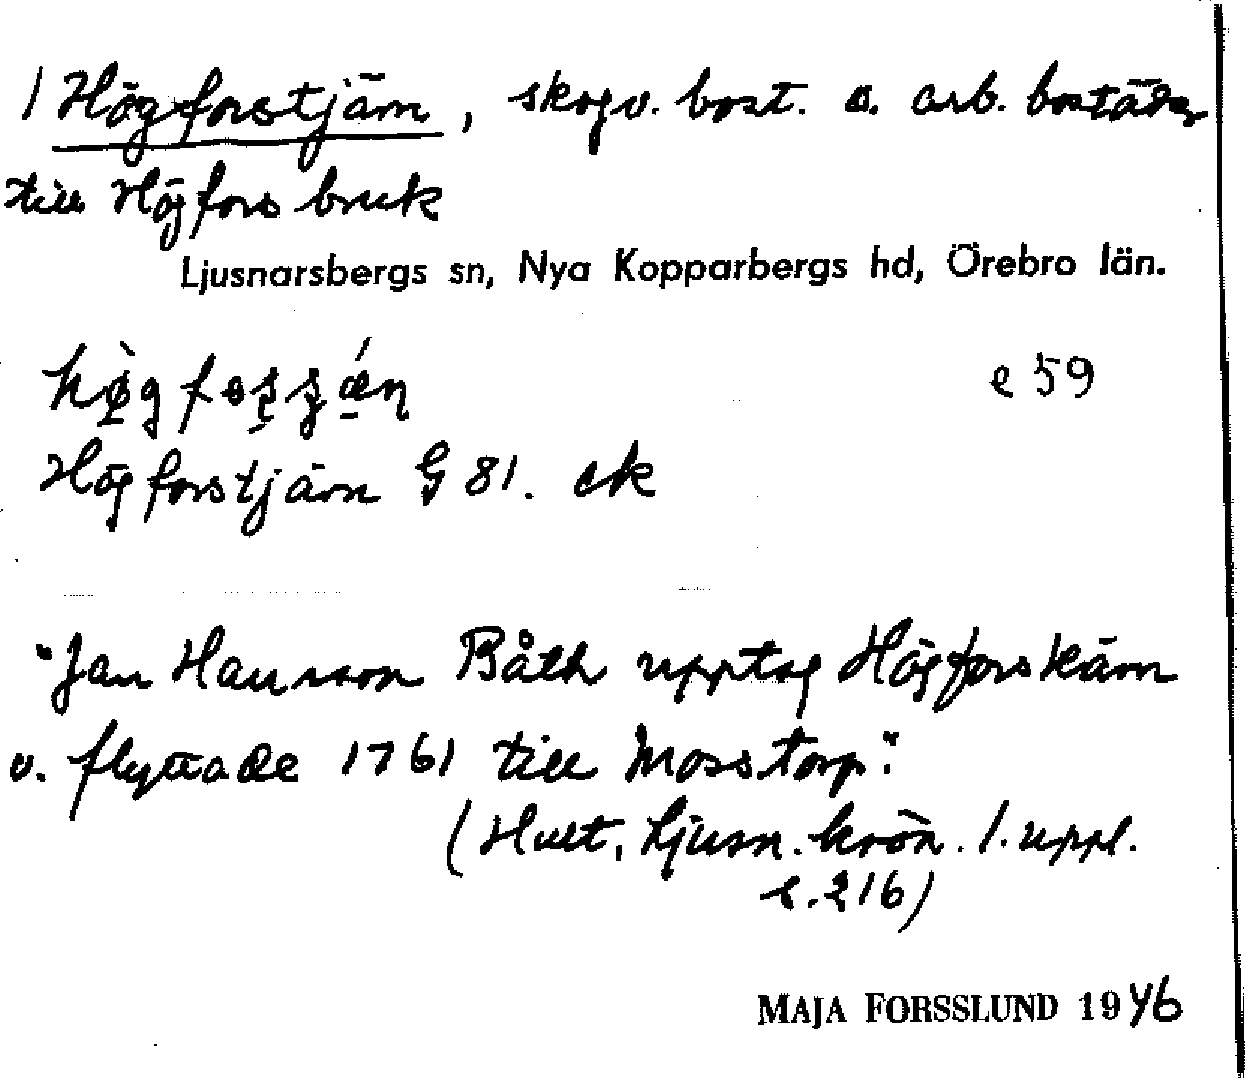 1 Högforstjärn, skogv. bost. o. arb. bostäder
till Högfors bruk
Ljusnarsbergs sn, Nya Kopparbergs hd, Örebro län.
e 59
Högforstjärn G 81. ek
"Jan Hansson Båth upptog Högforskärn
o. flyttade 1761 till Mosstorp."
(Hult, Ljusn. krön. 1. uppl.
s. 216)
MAJA FORSSLUND 1946